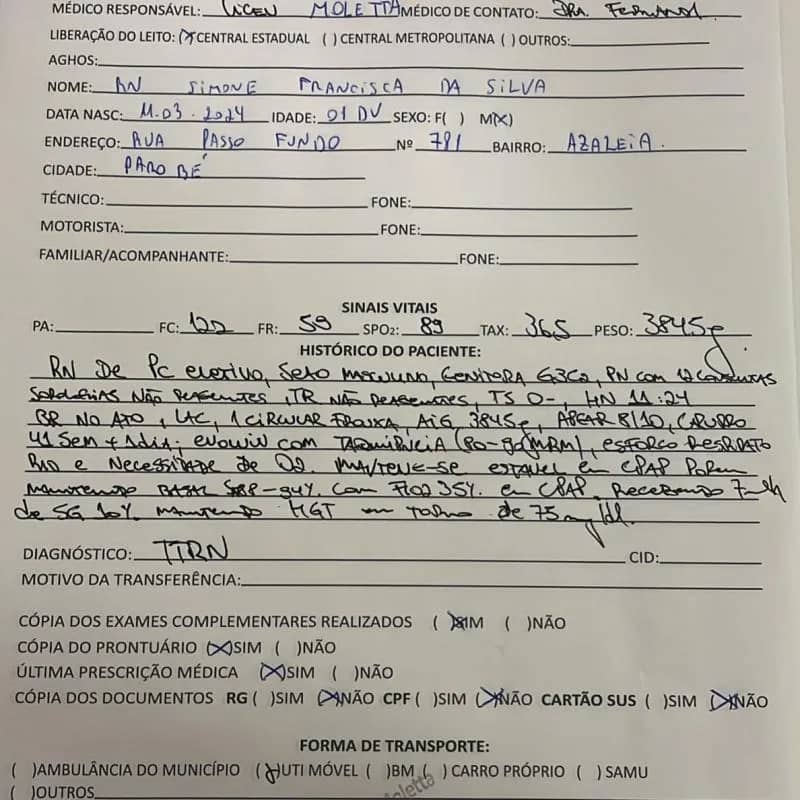 MÉDICO RESPONSÁVEL: MOLETTA MÉDICO DE CONTATO: DRA. FERNANDA
LIBERAÇÃO DO LEITO: (X) CENTRAL ESTADUAL ( ) CENTRAL METROPOLITANA ( ) OUTROS:
AGHOS:
NOME: RN SIMONE FRANCISCA DA SILVA
DATA NASC: 11.03.2024 IDADE: 01 DV SEXO: F( ) M(X)
ENDEREÇO: RUA PASSO FUNDO Nº 781 BAIRRO: AZALEIA.
CIDADE: PAROBÉ
TÉCNICO: FONE:
MOTORISTA: FONE:
FAMILIAR/ACOMPANHANTE: FONE:
SINAIS VITAIS
PA: FC: 122 FR: 59 SPO2: 89 TAX: 36,5 PESO: 3845g
HISTÓRICO DO PACIENTE:
RN DE PC eletivo, Sexo masculino, Genitora G3C2, PN com 12 consultas
sorologias não reagentes, TR não reagentes, TS O-, HN 11:24
BR no ato, LAC, 1 circular frouxa, AIG 3845g, APGAR 8/10, Capurro
41 sem + 1 dia; evoluiu com taquipneia (80-90 MRM), esforço respirató
rio e necessidade de O2. Manteve-se estável em CPAP porém
mantendo basal 88-94%. com FiO2 35%. em CPAP. Recebendo
de SG 10%. mantendo HGT em torno de 75 mg/dl.
DIAGNÓSTICO: TTRN CID:
MOTIVO DA TRANSFERÊNCIA:
CÓPIA DOS EXAMES COMPLEMENTARES REALIZADOS (X) SIM ( )NÃO
CÓPIA DO PRONTUÁRIO (X)SIM ( )NÃO
ÚLTIMA PRESCRIÇÃO MÉDICA (X)SIM ( )NÃO
CÓPIA DOS DOCUMENTOS RG ( )SIM (X)NÃO CPF ( )SIM (X)NÃO CARTÃO SUS ( )SIM (X)NÃO
FORMA DE TRANSPORTE:
( )AMBULÂNCIA DO MUNICÍPIO (X)UTI MÓVEL ( )BM ( ) CARRO PRÓPRIO ( ) SAMU
( )OUTROS